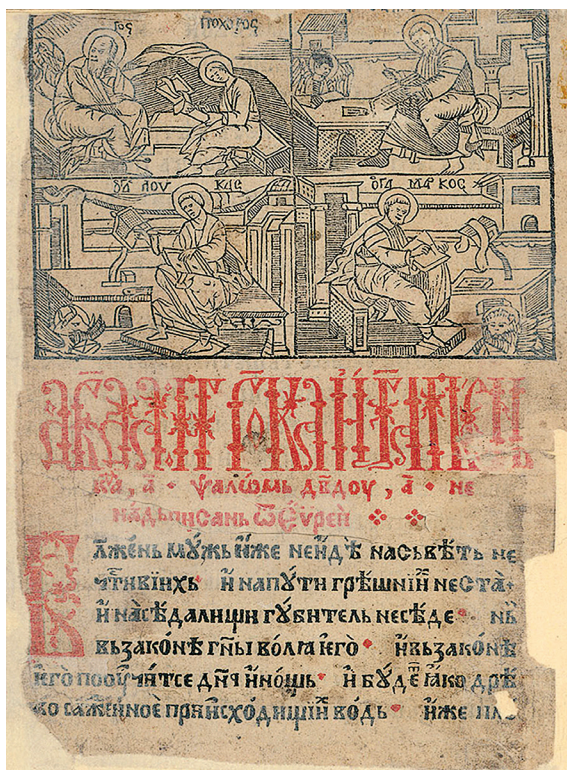 ПОХОРОС
ЛОУ КАС
ОГА МАРКОС
а҃ · ѱалѡмь дв҃доу , а҃ · не
надьписань ѿ еѵрей
Блажень мꙋжь иже неидѣ насьвѣть не
чтⷭ҇ивїихь · и напꙋти грѣшнїиⷯ неста ·
и насѣдалищи гꙋбитель неседе · нь
вьзаконѣ гн҃ы волꙗ ѥго · ивьзаконѣ
ѥго пооучитсе дн҃ь и нощь · и бꙋдеⷮ ꙗко дрѣ
во сажⷣенное при исходищїиⷯ водь · иже пло